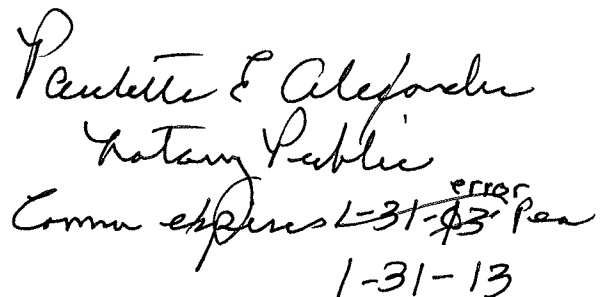 Paulette E Alexander
Notary Public
error
Comm expires 1-31-03 Pea
1-31-13